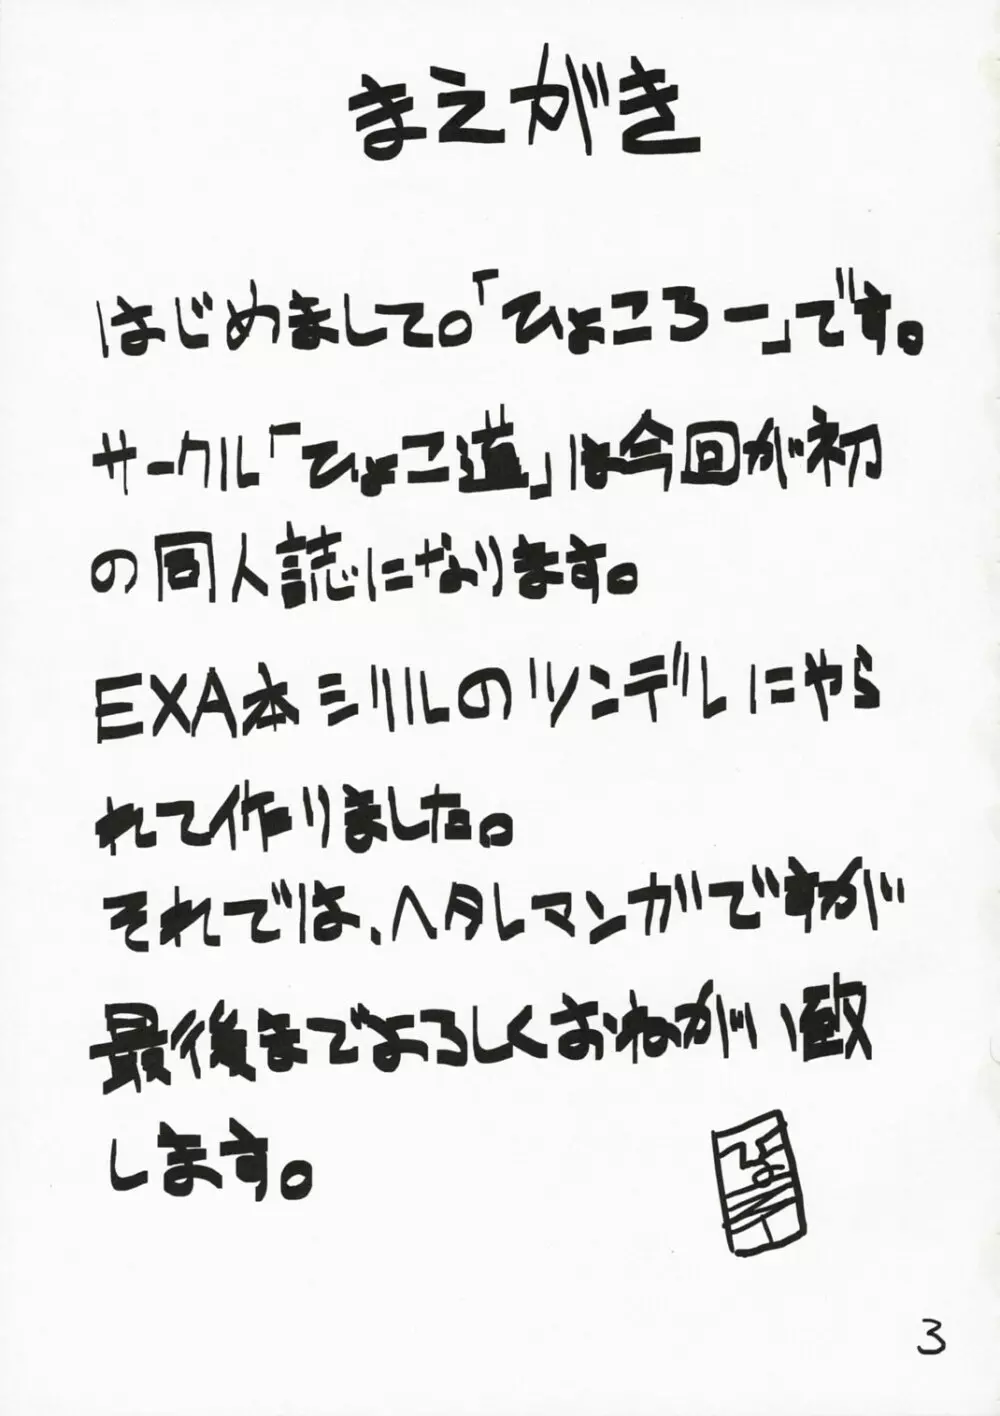 まえがき
はじめまして。「ひょころー」です。
サークル「ひょこ道」は今回が初
の同人誌になります。
EXA本シリルのツンデレにやら
れて作りました。
それでは、ヘタレマンガですが
最後までよろしくおねがい致
します。
3